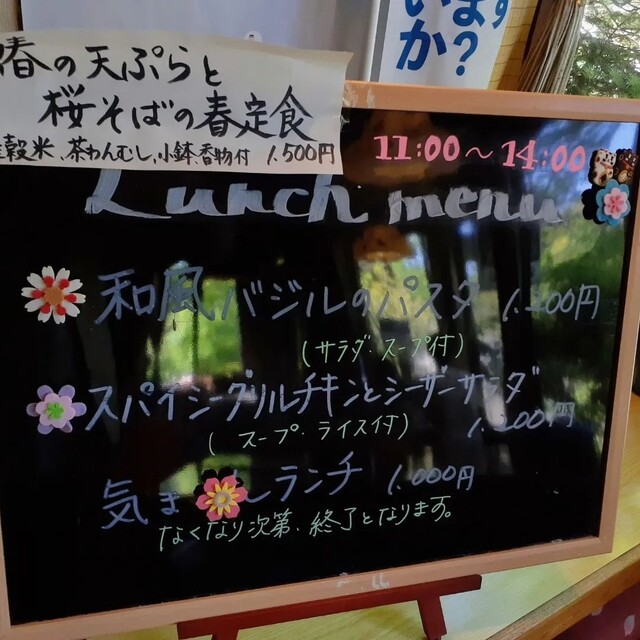 春の天ぷらと
桜そばの春定食
穀米、茶わんむし、小鉢、香物付 1,500円
いますか?
11:00～14:00
Lunch menu
和風バジルのパスタ
(サラダ・スープ付)
スパイシーグリルチキンとシーザーサラダ
(スープ・ライス付) 1,200円
気ま しランチ 1,000円
なくなり次第、終了となります。